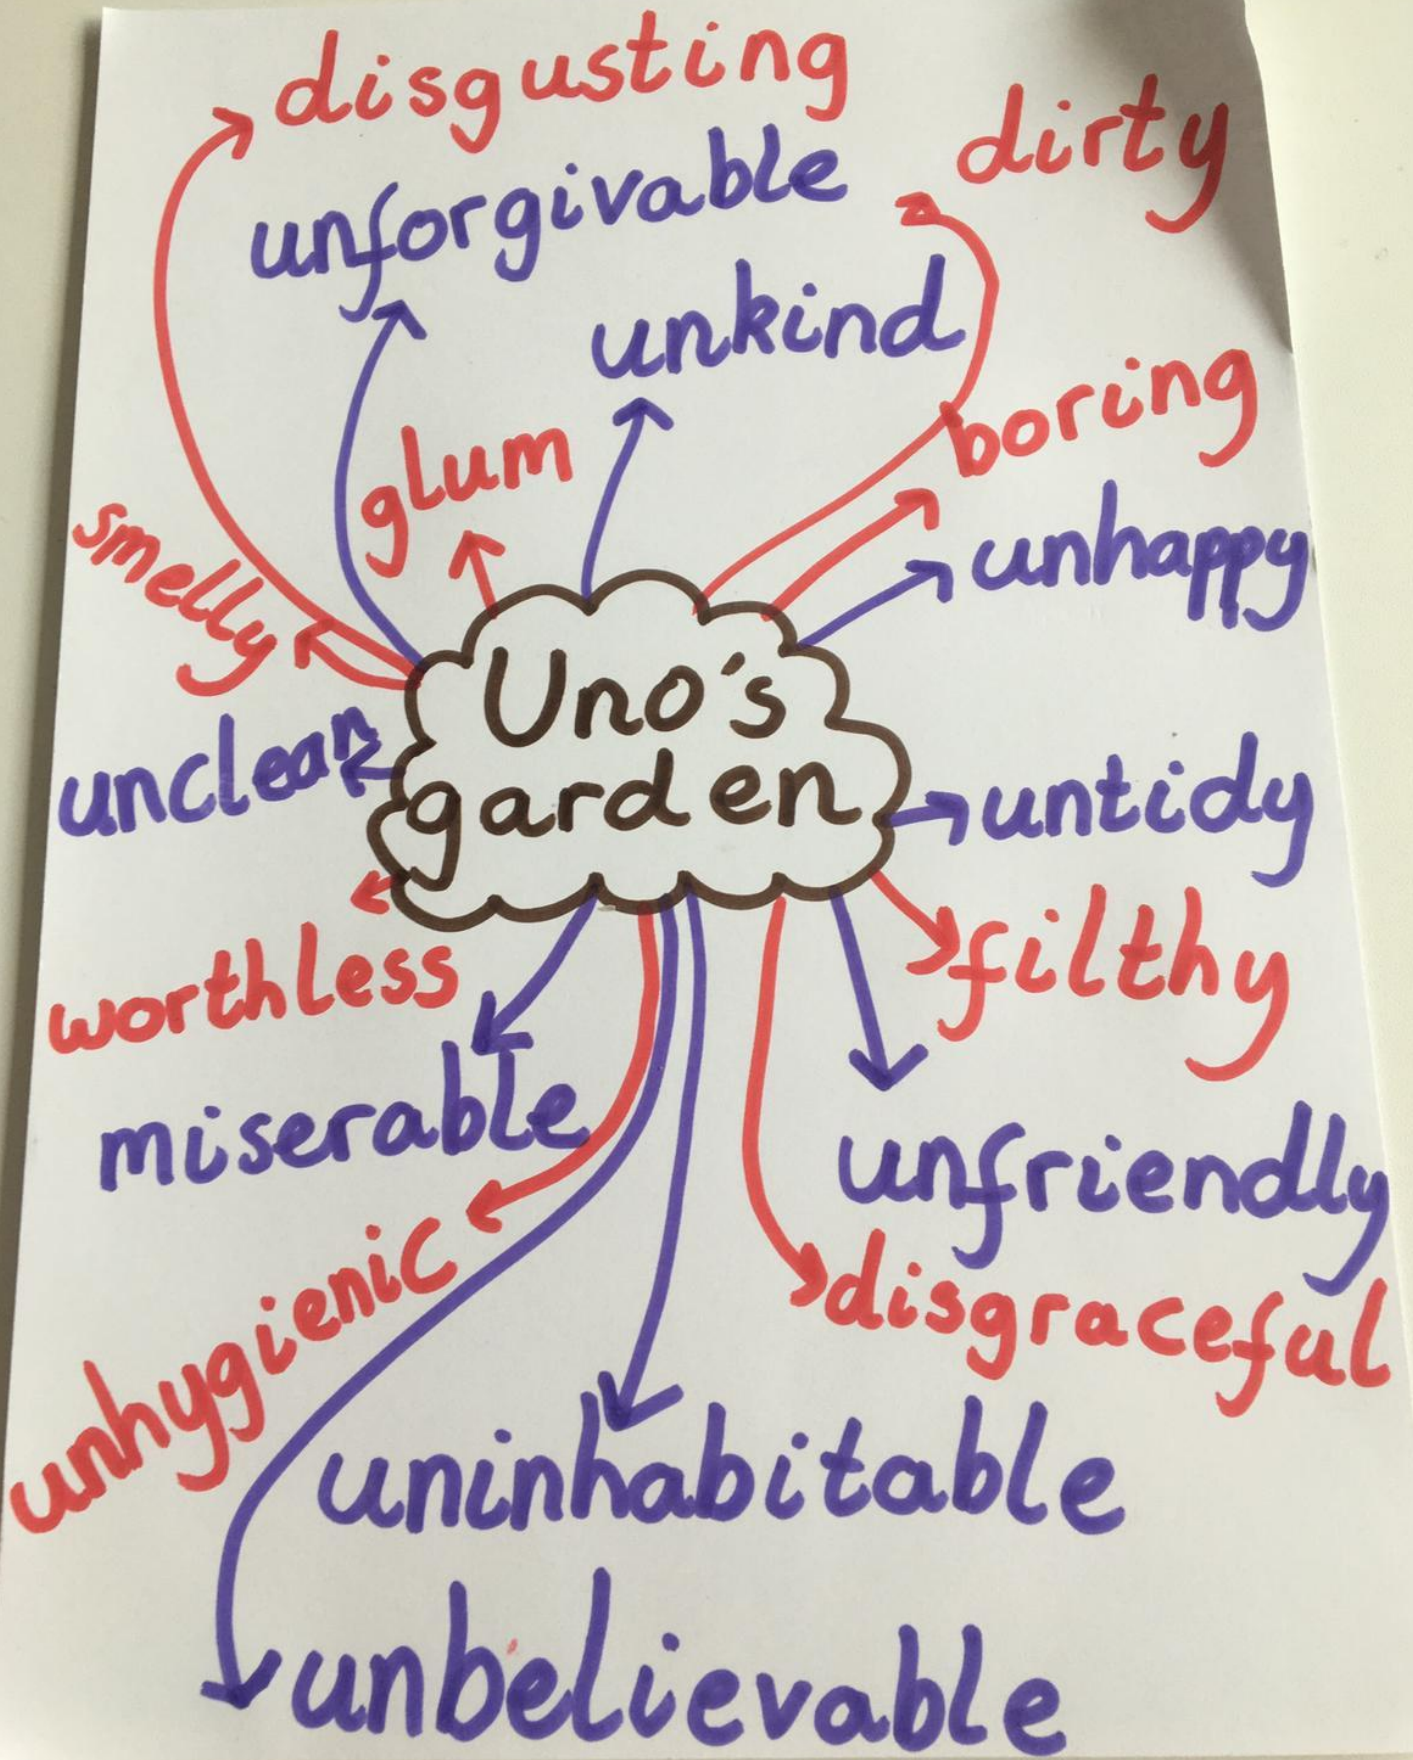 disgusting
dirty
unforgivable
unkind
boring
glum
unhappy
smelly
Uno's
garden
unclean
untidy
filthy
worthless
miserable
unfriendly
unhygienic
disgraceful
uninhabitable
unbelievable